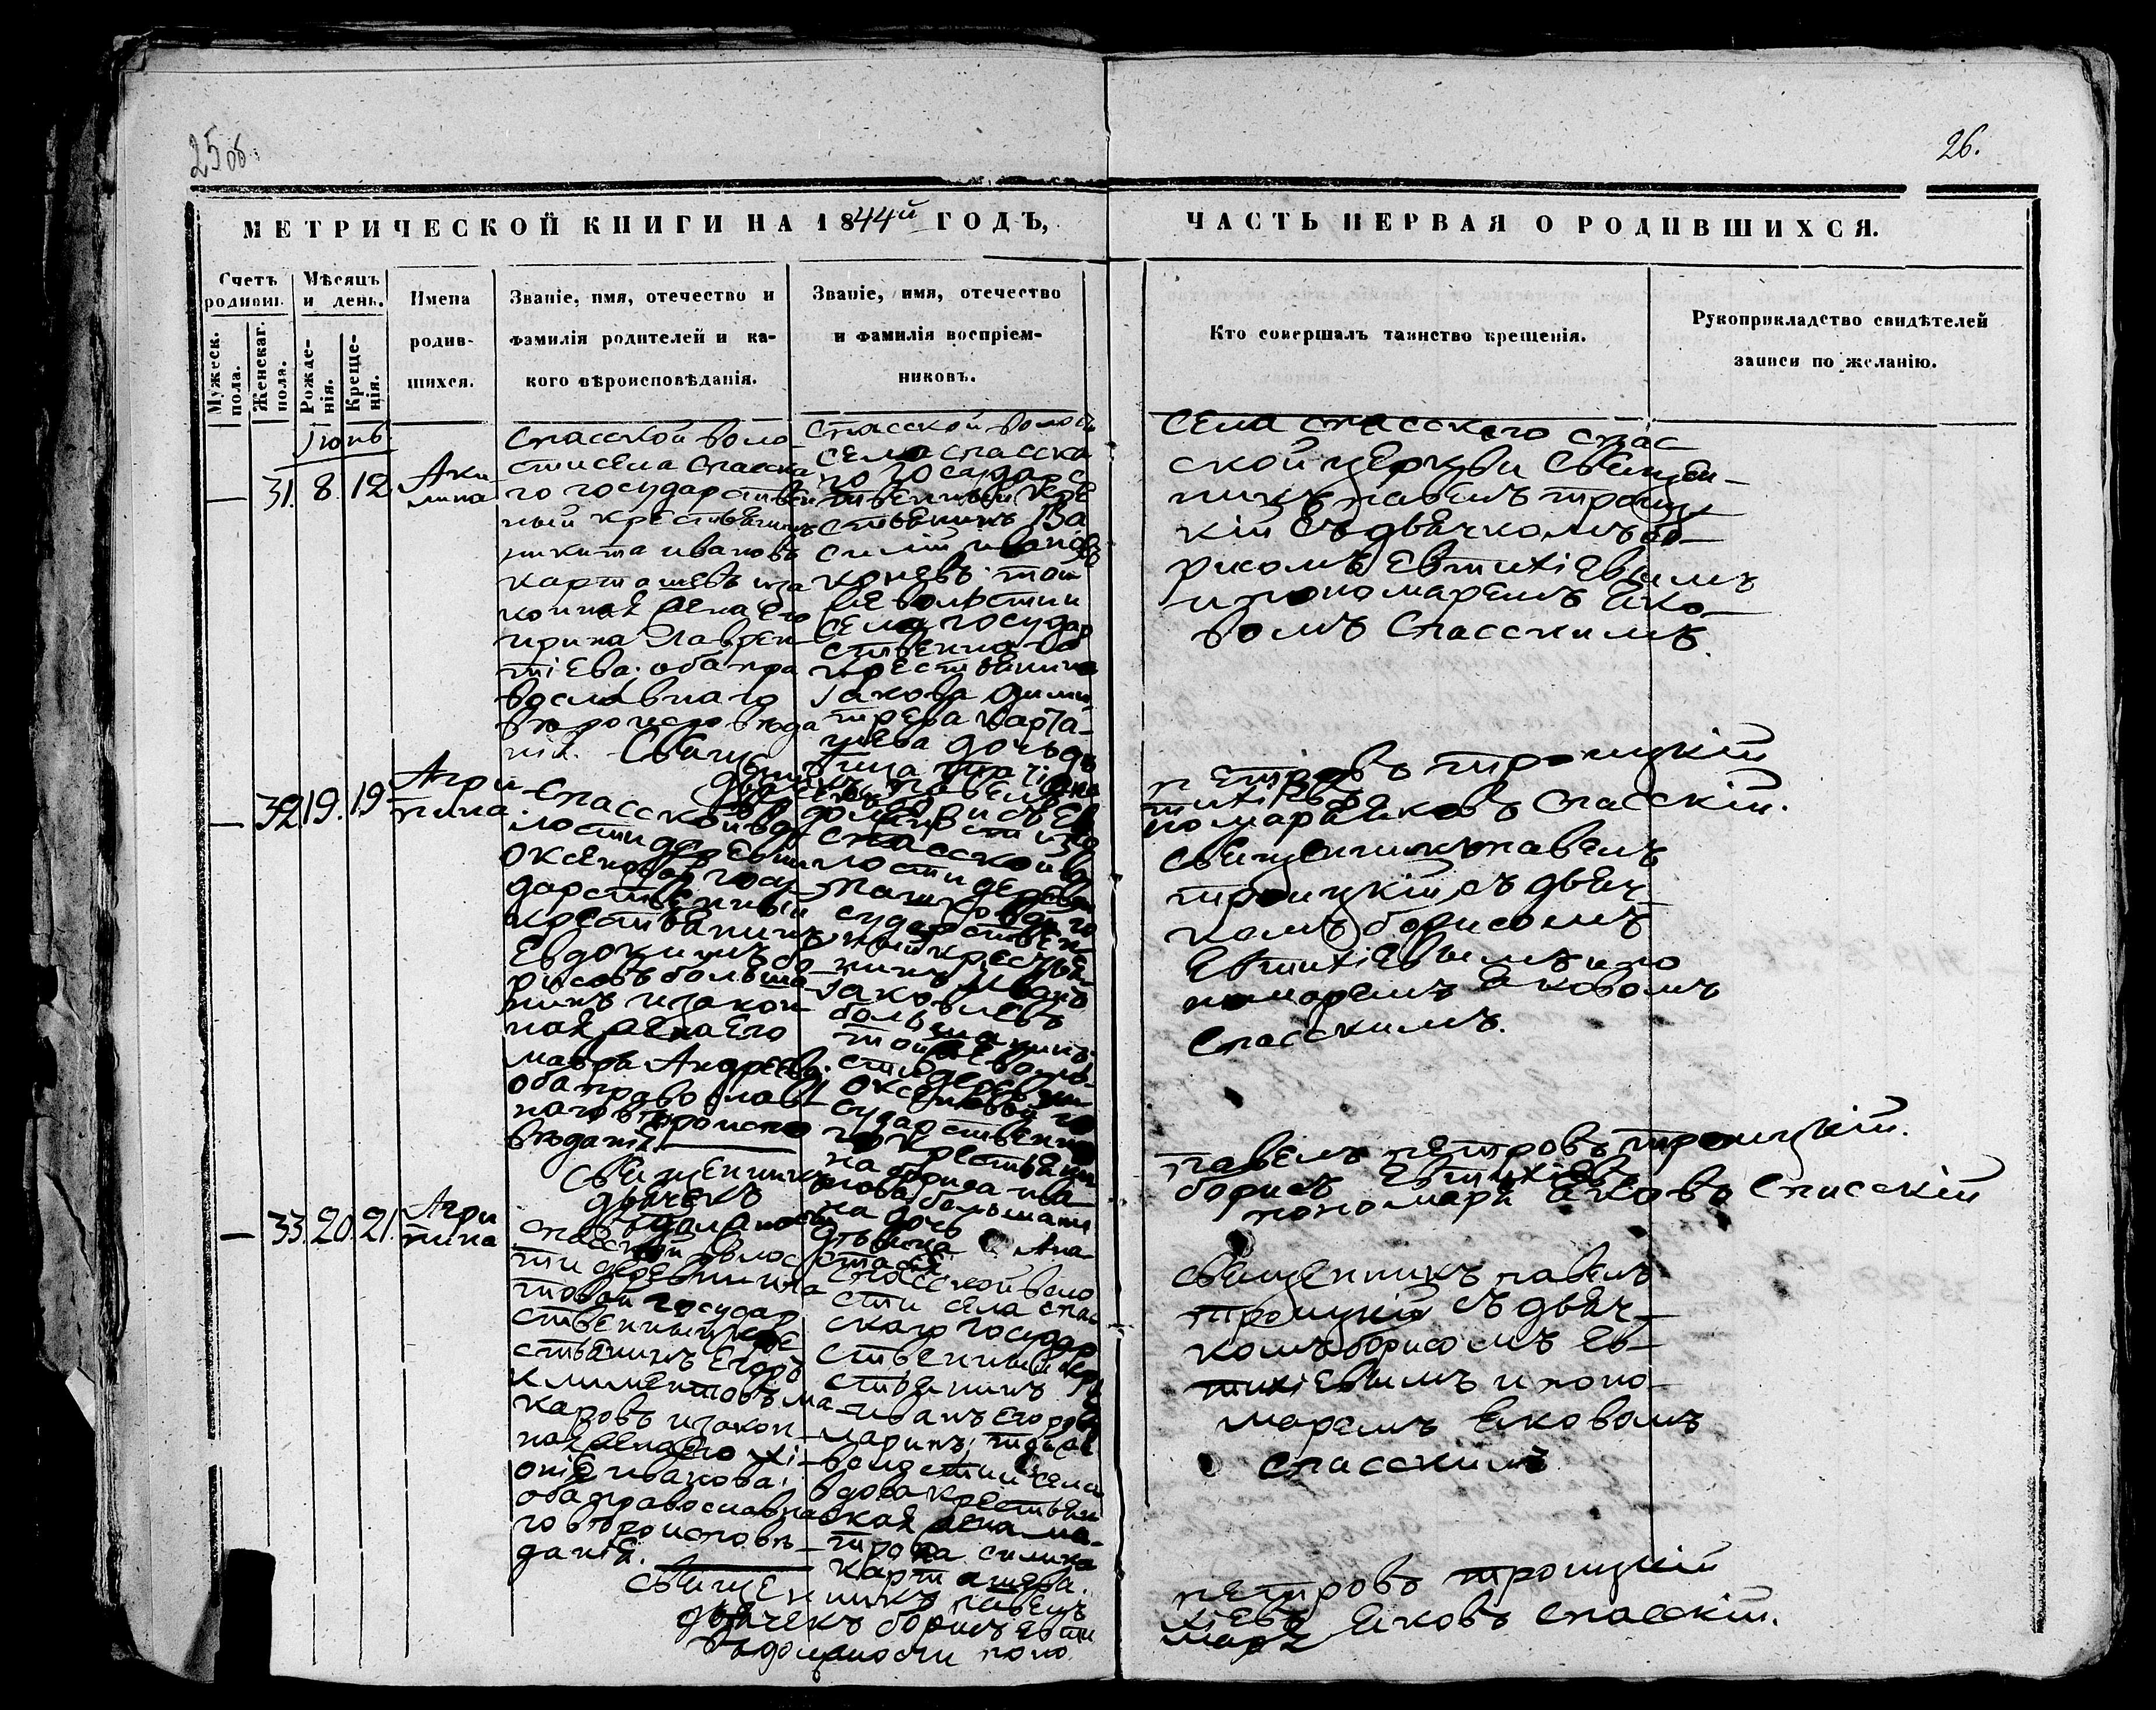 25 об.
26.
МЕТРИЧЕСКОЙ КНИГИ НА 1844й ГОДЪ,
ЧАСТЬ ПЕРВАЯ О РОДИВШИХСЯ.
Счетъ родивш.
Мужеск. пола.
Женскаг. пола.
Мѣсяцъ и день.
Рожденія.
Крещенія.
Имена
родив-
шихся.
Званіе, имя, отечество и
фамилія родителей и ка-
кого вѣроисповѣданія.
Званіе, имя, отечество
и фамилія воспріем-
никовъ.
Кто совершалъ таинство крещенія.
Рукоприкладство свидѣтелей
записи по желанію.
Іюнь
— 31. 8. 12
Аки
лина
Спасской воло
сти села Спасска
го государствен
ный крестьянинъ
никита ивановъ
карташевъ иза
конная жена его
ирина Лаврен
тіева: оба пра
вославнаго
вѣроисповѣда
нія.
Спасской волости
села спасска
го государ
ственный кре
стьянинъ Ва
силій ивановъ
коневъ. той
же волости
села государ
ственнаго
крестьянина
Іакова дими
трева карта-
шева дочь дѣ
вица татіана
села спасскаго спас
ской церкви священ-
никъ павелъ троиц
кій съ дьячкомъ бо-
рисомъ Евтихіевымъ
и пономаремъ Яко-
вомъ Спасскимъ.
Священникъ павелъ
петровъ троицкій
дьячекъ борисъ Ев
тихіевъ
пономарь Яковъ спасскій.
— 32. 19. 19
Агри
пина
Спасской во
лости деревни
Оксеновой госу
дарственный
крестьянинъ
Евдокимъ бо
рисовъ больша
нинъ и закон
ная жена его
мавра Андреева.
оба православ
наго вѣроиспо
вѣданія.
спасской во
лости деревни
го
сударствен
ный крестья
нинъ иванъ
Іаковлевъ
большанинъ
той же воло-
сти деревни
Оксеновой го
сударственна
го крестьяни
на бориса ива
нова большани
на дочь
дѣвица Ана
стасія
священникъ павелъ
троицкій съ дьяч
комъ борисомъ
Евтихіевымъ и по
номаремъ Яковомъ
Спасскимъ.
Священникъ
павелъ петровъ троицкій.
дьячекъ
борисъ Евтихіевъ
въ должности
пономаря Яковъ Спасскій
— 33. 20. 21.
Агри
пина
Спасской волос
ти деревни ипа
товой государ
ственный кре
стьянинъ Егоръ
климентовъ ма
каровъ и закон
ная жена его хі
онія иванова:
оба православна
го вѣроисповѣ
данія.
спасской воло
сти села спас
скаго государ
ственный кре
стьянинъ
иванъ егоровъ
маринъ; той же
волости села
вдова крестьян
ская жена ма-
трона силина
карташева.
священникъ павелъ
троицкій съ дьяч-
комъ борисомъ Ев-
тихіевымъ и поно-
маремъ Яковомъ
спасскимъ
священникъ павелъ
петровъ троицкій
дьячекъ борисъ евти
хіевъ
въ должности поно
маря Яковъ спасскій.